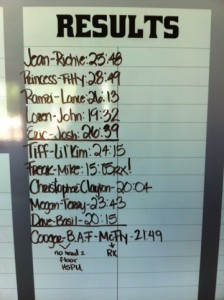 RESULTS
Jean-Richie: 25:48
Princess-Tiffy: 28:49
Ramsi-Lance: 26:13
Loren-John: 19:32
Eric-Josh: 26:39
Tiff-Lil'Kim: 24:15
Freak-Mike: 15:05rx!
Christopher-Clayton-20:04
Megan-Terry: 23:43
Dave-Basil-20:15
Cougar-B.A.F-McFly-21:49
no head 2
floor
HSPU
RX